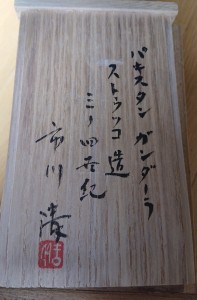 パキスタン ガンダーラ
ストゥッコ 造
三〜四世紀
市川